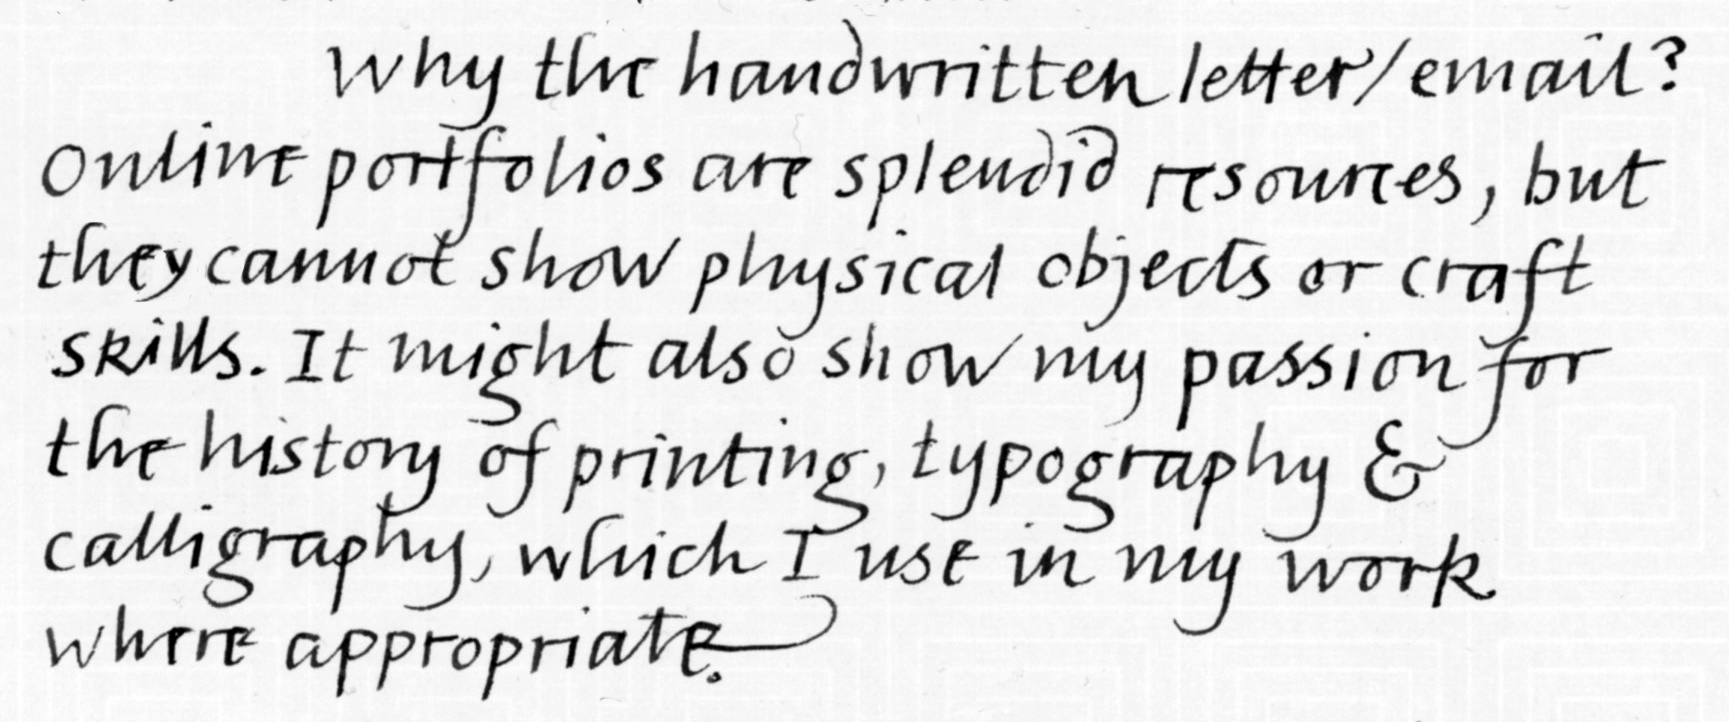 Why the handwritten letter/email?
Online portfolios are splendid resources, but
they cannot show physical objects or craft
skills. It might also show my passion for
the history of printing, typography &
calligraphy, which I use in my work
where appropriate.